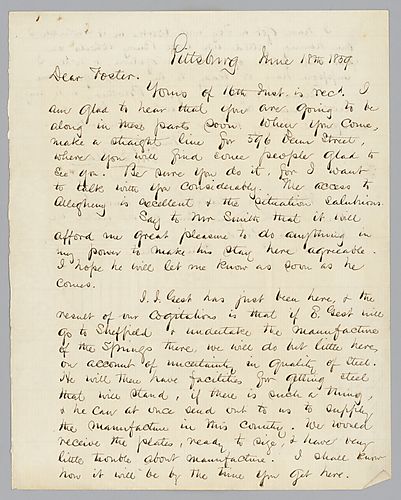 Pittsburg June 18th 1859
Dear Foster.
Yours of 16th Inst. is recd. I
am glad to hear that you are going to be
along in these parts soon. When you come,
make a straight line for 596 Penn Street,
where you will find some people glad to
see you. Be sure you do it, for I want
to talk with you considerably. The access to
Allegheny is excellent & the situation salubrious.
Say to Mr Smith that it will
afford me great pleasure to do anything in
my power to make his stay here agreeable.
I hope he will let me know as soon as he
comes.
Gest has just been here, & the
result of our Cogitations is that if E. Gest will
go to Sheffield & undertake the manufacture
of the Springs there, we will do but little here,
on account of uncertainty in quality of steel.
He will there have facilities for getting steel
that will stand, if there is such a thing,
& he can at once send out to us to supply
the manufacture in this Country. We would
receive the plates, ready to size, & have very
little trouble about manufacture. I shall know
how it will be by the time you get here.